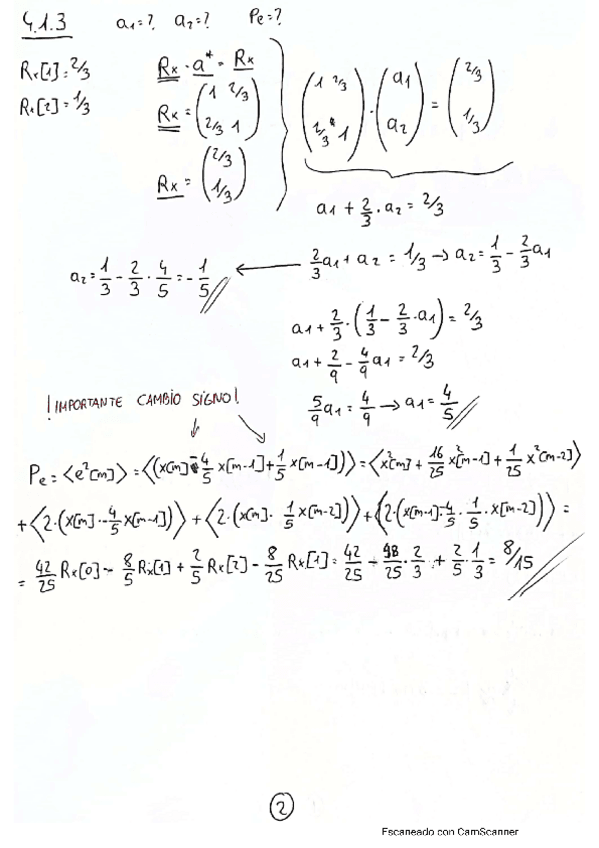 4.1.3 a1=? a2=? Pe=?
Rx[1]=2/3
Rx[2]=1/3
Rx · a* = Rx
Rx = (1 2/3
2/3 1)
Rx = (2/3
1/3)
(1 2/3
2/3 1) · (a1
a2) = (2/3
1/3)
a1 + 2/3 · a2 = 2/3
2/3 a1 + a2 = 1/3 → a2 = 1/3 - 2/3 a1
a2 = 1/3 - 2/3 · 4/5 = -1/5
a1 + 2/3 · (1/3 - 2/3 · a1) = 2/3
a1 + 2/9 - 4/9 a1 = 2/3
5/9 a1 = 4/9 → a1 = 4/5
¡IMPORTANTE CAMBIO SIGNO!
Pe = <e²[m]> = <(x[m] - 4/5 x[m-1] + 1/5 x[m-1])> = <x²[m] + 16/25 x²[m-1] + 1/25 x²[m-2]>
+ <2·(x[m] · -4/5 x[m-1])> + <2·(x[m] · 1/5 x[m-2])> + <2·(x[m-1] · -4/5 · 1/5 · x[m-2])> =
= 42/25 Rx[0] - 8/5 Rx[1] + 2/5 Rx[2] - 8/25 Rx[1] = 42/25 - 48/25 · 2/3 + 2/5 · 1/3 = 8/15
2
Escaneado con CamScanner